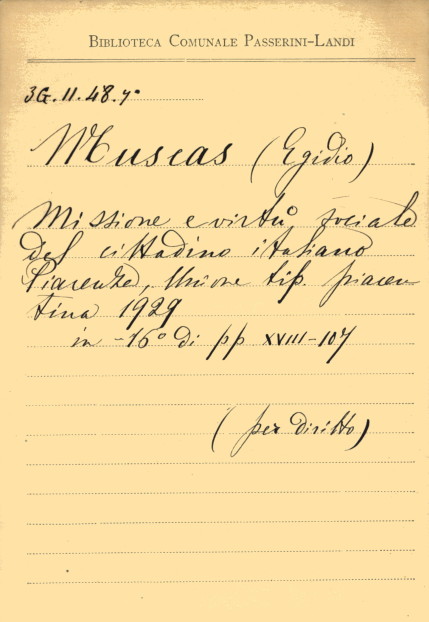 BIBLIOTECA COMUNALE PASSERINI-LANDI
3G.11.48.7º
Muscas (Egidio)
Missione e virtù sociale
del cittadino italiano
Piacenza, Unione tip. piacen-
tina 1929
in -16º di pp XVIII-107
(per diritto)